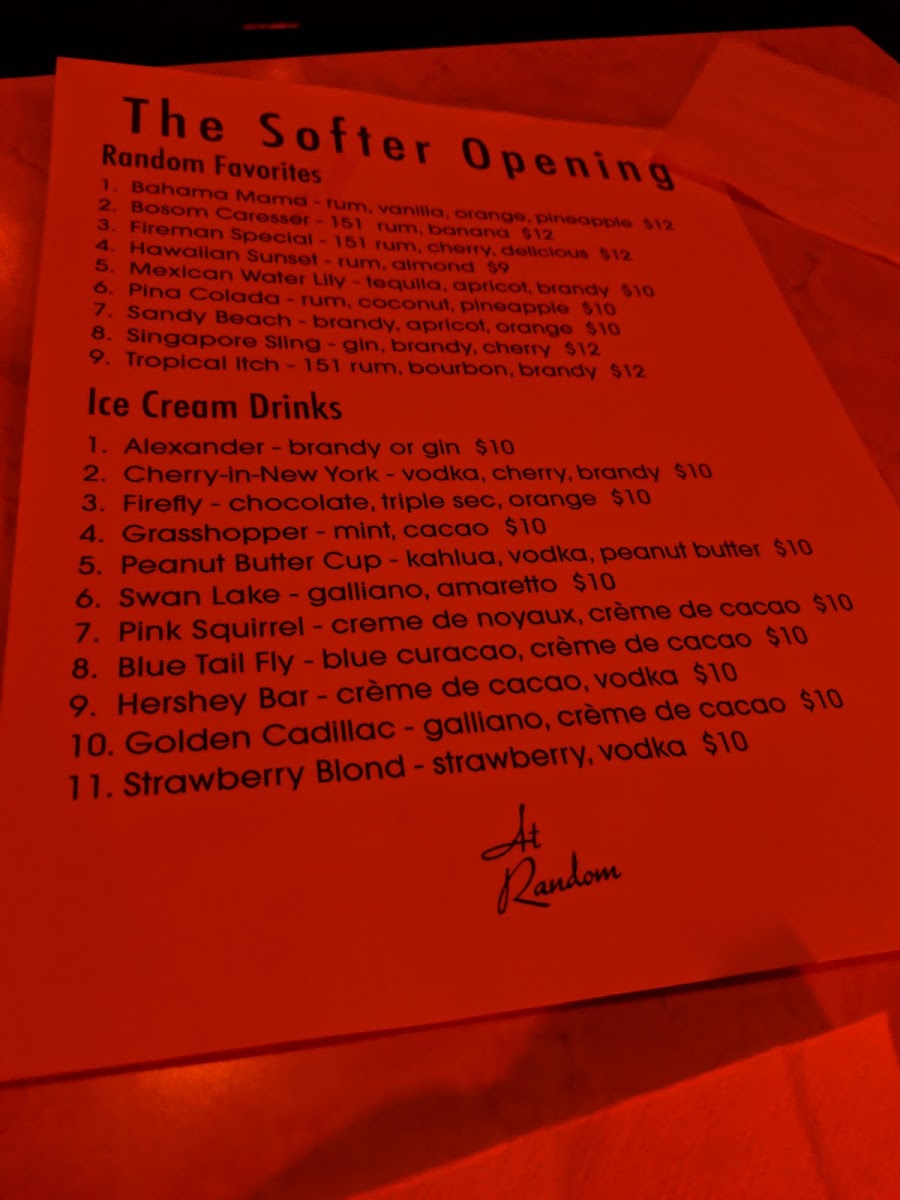 The Softer Opening
Random Favorites
1. Bahama Mama - rum, vanilla, orange, pineapple $12
2. Bosom Caresser - 151 rum, banana $12
3. Fireman Special - 151 rum, cherry, delicious $12
4. Hawaiian Sunset - rum, almond $9
5. Mexican Water Lily - tequila, apricot, brandy $10
6. Pina Colada - rum, coconut, pineapple $10
7. Sandy Beach - brandy, apricot, orange $10
8. Singapore Sling - gin, brandy, cherry $12
9. Tropical Itch - 151 rum, bourbon, brandy $12
Ice Cream Drinks
1. Alexander - brandy or gin $10
2. Cherry-in-New York - vodka, cherry, brandy $10
3. Firefly - chocolate, triple sec, orange $10
4. Grasshopper - mint, cacao $10
5. Peanut Butter Cup - kahlua, vodka, peanut butter $10
6. Swan Lake - galliano, amaretto $10
7. Pink Squirrel - creme de noyaux, crème de cacao $10
8. Blue Tail Fly - blue curacao, crème de cacao $10
9. Hershey Bar - crème de cacao, vodka $10
10. Golden Cadillac - galliano, crème de cacao $10
11. Strawberry Blond - strawberry, vodka $10
At
Random